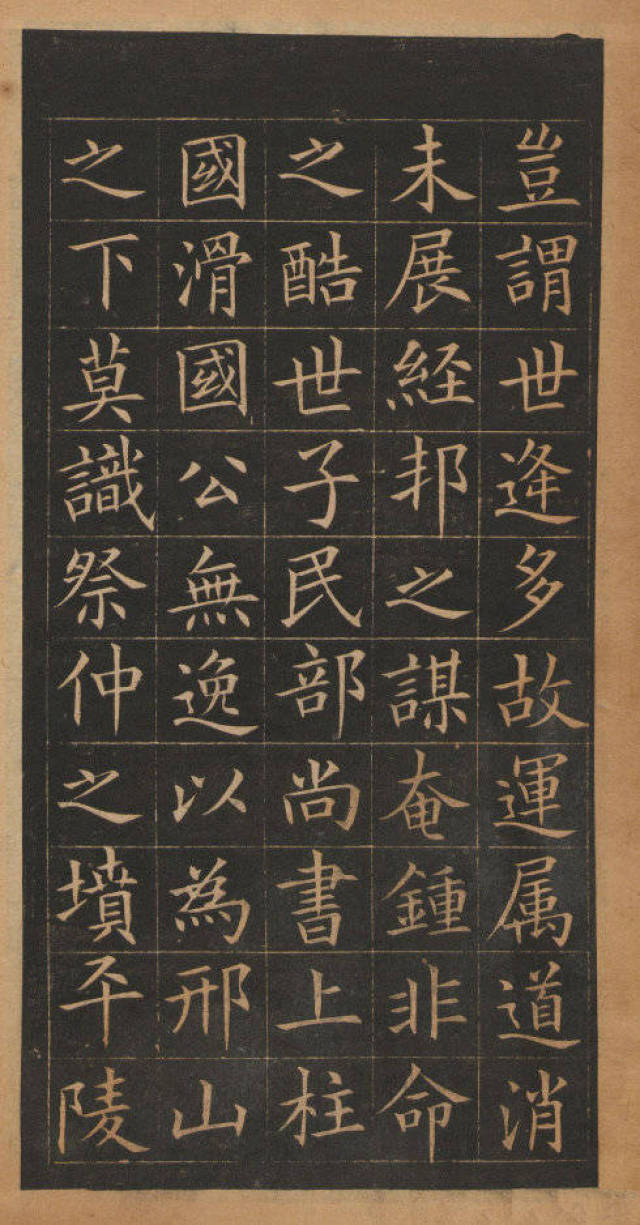 豈謂世逢多故運属道消
未展経邦之謀奄鍾非命
之酷世子民部尚書上柱
國滑國公無逸以為邢山
之下莫識祭仲之墳平陵